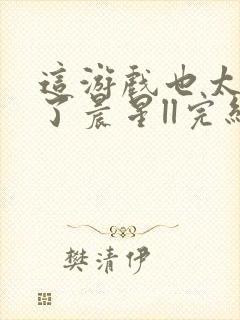 這游戲也太
了晨星||完結
樊清伊